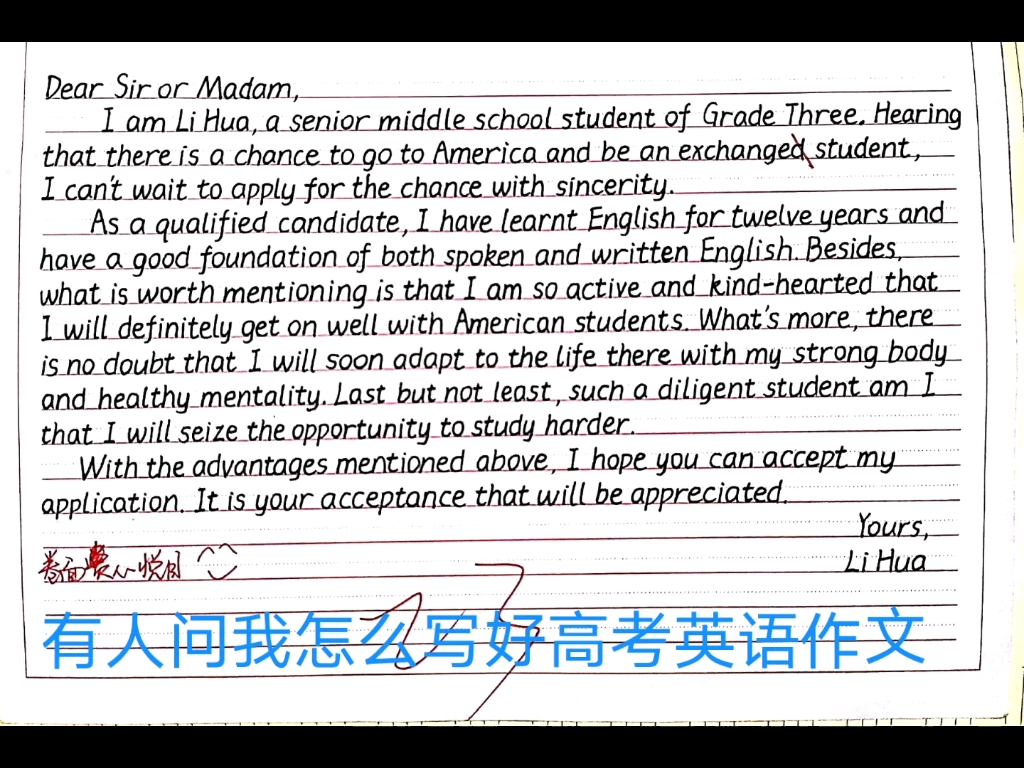 Dear Sir or Madam,
I am Li Hua, a senior middle school student of Grade Three. Hearing
that there is a chance to go to America and be an exchanged student,
I can't wait to apply for the chance with sincerity.
As a qualified candidate, I have learnt English for twelve years and
have a good foundation of both spoken and written English. Besides,
what is worth mentioning is that I am so active and kind-hearted that
I will definitely get on well with American students. What's more, there
is no doubt that I will soon adapt to the life there with my strong body
and healthy mentality. Last but not least, such a diligent student am I
that I will seize the opportunity to study harder.
With the advantages mentioned above, I hope you can accept my
application. It is your acceptance that will be appreciated.
Yours,
Li Hua
卷面赏心悦目
23
有人问我怎么写好高考英语作文